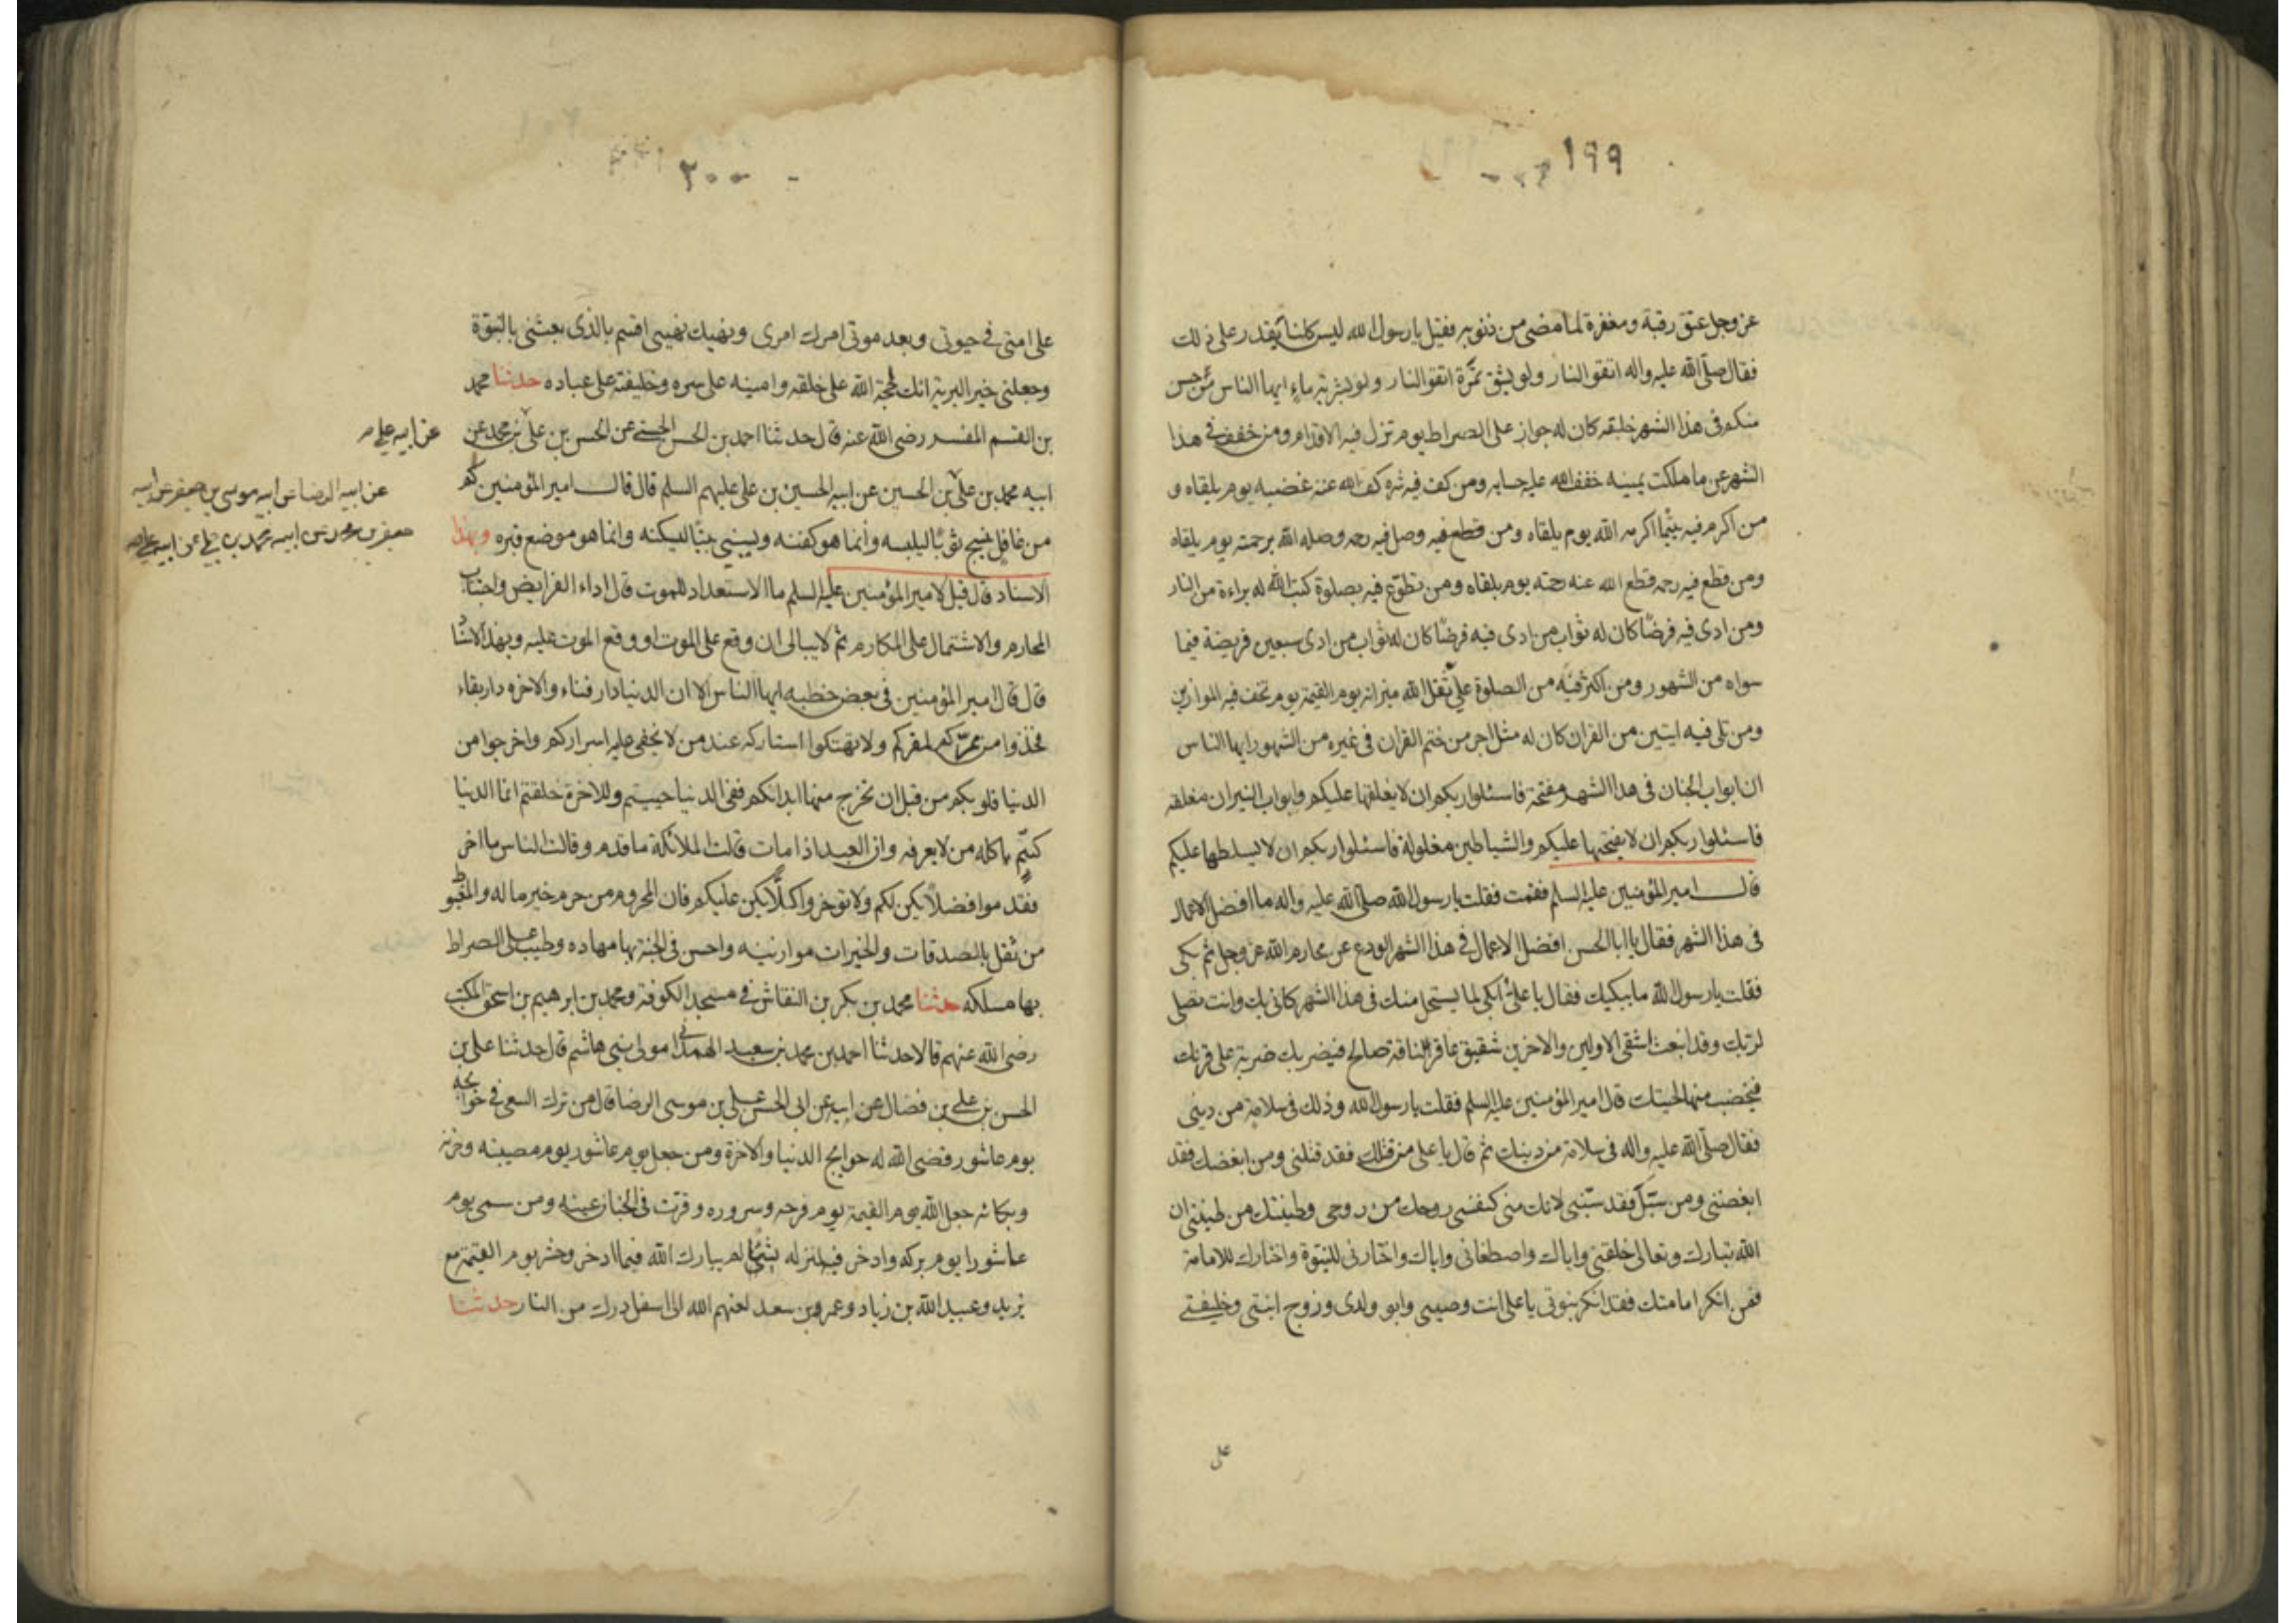 ١٩٩
عز وجل عتق رقبة ومغفرة لما مضى من ذنوبه فقيل يا رسول الله ليس كلنا يقدر على ذلك
فقال صلى الله عليه واله اتقوا النار ولو بشق تمرة اتقوا النار ولو بشربة ماء ايها الناس من حسن
منكم فى هذا الشهر خلقه كان له جواز على الصراط يوم تزل فيه الاقدام ومن خفف فى هذا
الشهر عن ما ملكت يمينه خفف الله عليه حسابه ومن كف فيه شره كف الله عنه غضبه يوم يلقاه و
من اكرم فيه يتيما اكرمه الله يوم يلقاه ومن وصل فيه رحمه وصله الله برحمته يوم يلقاه
ومن قطع فيه رحمه قطع الله عنه رحمته يوم يلقاه ومن تطوع فيه بصلوة كتب الله له براءة من النار
ومن ادى فيه فرضا كان له ثواب من ادى سبعين فريضة فيما
سواه من الشهور ومن اكثر فيه من الصلوة على ثقل الله ميزانه يوم القيمة يوم تخف فيه الموازين
ومن تلى فيه ايتين من القران كان له مثل اجر من ختم القران فى غيره من الشهور ايها الناس
ان ابواب الجنان فى هذا الشهر مفتحة فاسئلوا ربكم ان لا يغلقها عليكم وابواب النيران مغلقه
فاسئلوا ربكم ان لا يفتحها عليكم والشياطين مغلولة فاسئلوا ربكم ان لا يسلطها عليكم
قال امير المؤمنين عليه السلم فقمت فقلت يا رسول الله صلى الله عليه واله ما افضل الاعمال
فى هذا الشهر فقال يا ابا الحسن افضل الاعمال فى هذا الشهر الورع عن محارم الله عز وجل ثم بكى
فقلت يا رسول الله ما يبكيك فقال يا على ابكى لما يستحل منك فى هذا الشهر كانى بك وانت تصلى
لربك وقد انبعث اشقى الاولين والاخرين شقيق عاقر الناقة صالح فيضربك ضربة على قرنك
فيخضب منها لحيتك قال امير المؤمنين عليه السلم فقلت يا رسول الله وذلك فى سلامة من دينى
فقال صلى الله عليه واله فى سلامة من دينك ثم قال يا على من قتلك فقد قتلنى ومن ابغضك فقد
ابغضنى ومن سبك فقد سبنى لانك منى كنفسى روحك من روحى وطينتك من طينتى ان
الله تبارك وتعالى خلقنى واياك واصطفانى واياك واختارنى للنبوة واختارك للامامة
فمن انكر امامتك فقد انكر نبوتى يا على انت وصيى وابو ولدى وزوج ابنتى وخليفتى
على
٢٠٠
على امتى فى حيوتى وبعد موتى امرك امرى ونهيك نهيى اقسم بالذى بعثنى بالنبوة
وجعلنى خير البرية انك لحجة الله على خلقه وامينه على سره وخليفته على عباده حدثنا محمد
بن القسم المفسر رضى الله عنه قال حدثنا احمد بن الحسن الحسنى عن الحسن بن على بن محمد عن
عن ابيه على
ابيه محمد بن على بن الحسين عن ابيه الحسين بن على عليهم السلم قال قال امير المؤمنين كم
عن ابيه الرضا عن ابيه موسى بن جعفر عن ابيه
جعفر بن محمد عن ابيه محمد بن على عن ابيه على
من غافل ينسج ثوبا ليلبسه وانما هو كفنه ويبنى بيتا ليسكنه وانما هو موضع قبره وبهذا
الاسناد قال قيل لامير المؤمنين عليه السلم ما الاستعداد للموت قال اداء الفرايض واجتناب
المحارم والاشتمال على المكارم ثم لا يبالى ان وقع على الموت او وقع الموت عليه وبهذا الاسناد
قال قال امير المؤمنين فى بعض خطبه ايها الناس الا ان الدنيا دار فناء والاخرة دار بقاء
فخذوا من ممركم لمقركم ولا تهتكوا استاركم عند من لا تخفى عليه اسراركم واخرجوا من
الدنيا قلوبكم من قبل ان تخرج منها ابدانكم ففى الدنيا حييتم وللاخرة خلقتم انما الدنيا
كسم ياكله من لا يعرفه وان العبد اذا مات قالت الملائكة ما قدم وقالت الناس ما اخر
فقدموا فضلا يكن لكم ولا تؤخروا كلا يكن عليكم فان المحروم من حرم خير ماله والمغبوط
من ثقل بالصدقات والخيرات موازينه واحسن فى الجنة بها مهاده وطيب على الصراط
بها مسلكه حدثنا محمد بن بكرين النقاش فى مسجد الكوفة ومحمد بن ابرهيم بن اسحق المكتب
رضى الله عنهم قالا حدثنا احمد بن محمد بن سعيد الهمدانى مولى بنى هاشم قال حدثنا على بن
الحسن بن على بن فضال عن ابيه عن ابى الحسن على بن موسى الرضا قال من ترك السعى فى حوائجه
يوم عاشور قضى الله له حوايج الدنيا والاخرة ومن جعل يوم عاشور يوم مصيبته وحزنه
وبكائه جعل الله يوم القيمة يوم فرحه وسروره وقرت فى الجنان عينه ومن سمى يوم
عاشورا يوم بركه وادخر فيه لمنزله شيئا لم يبارك الله فيما ادخر وحشر يوم القيمة مع
يزيد وعبيد الله بن زياد وعمر بن سعد لعنهم الله الى اسفل درك من النار حدثنا